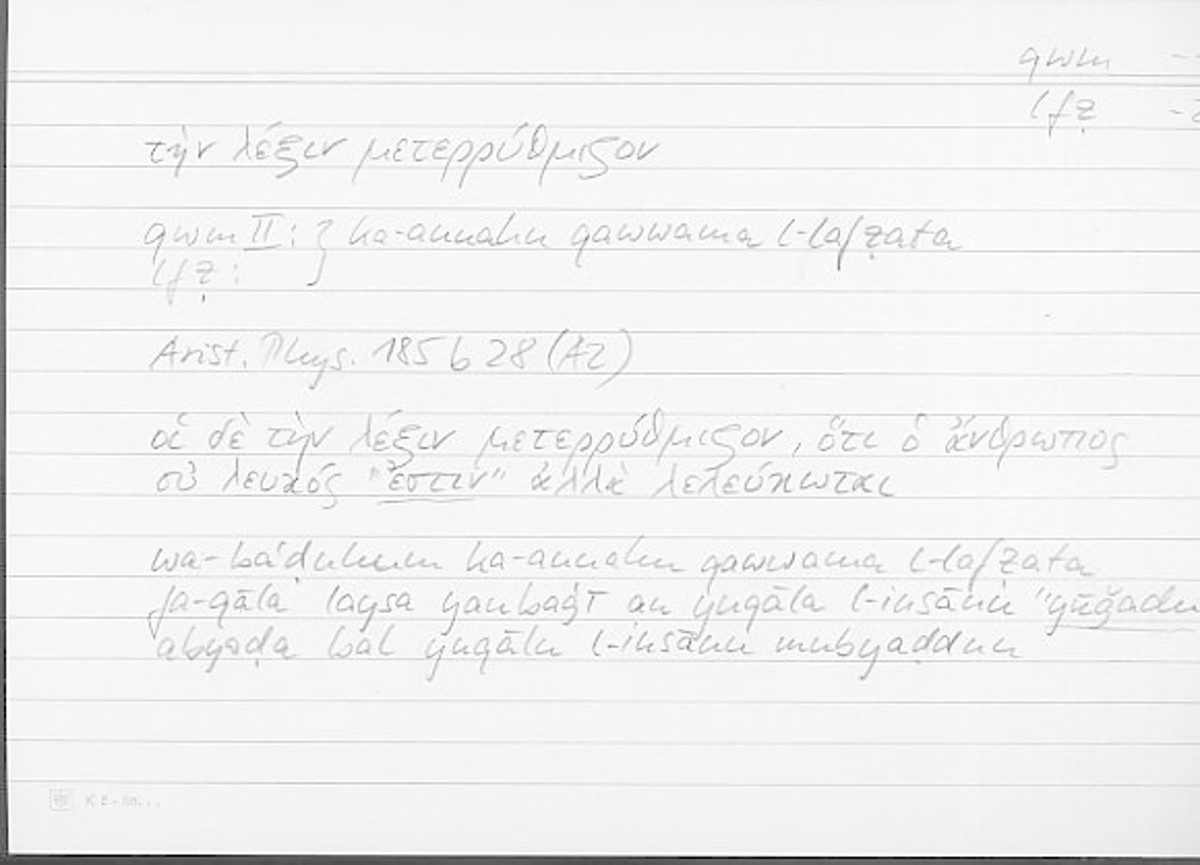 qwm --
lfẓ -
τὴν λέξιν μετερρύθμιζον
qwm II : } ka-annahu qawwama l-lafẓata
lfẓ :
Arist. Phys. 185 b 28 (A2)
οἱ δὲ τὴν λέξιν μετερρύθμιζον, ὅτι ὁ ἄνθρωπος
οὐ λευκός "ἐστιν" ἀλλὰ λελεύκωται
wa-baʿḍuhum ka-annahu qawwama l-lafẓata
fa-qāla laysa yanbaġī an yuqāla l-insānu "yūǧadu
abyaḍa bal yuqālu l-insānu mubyaḍḍun